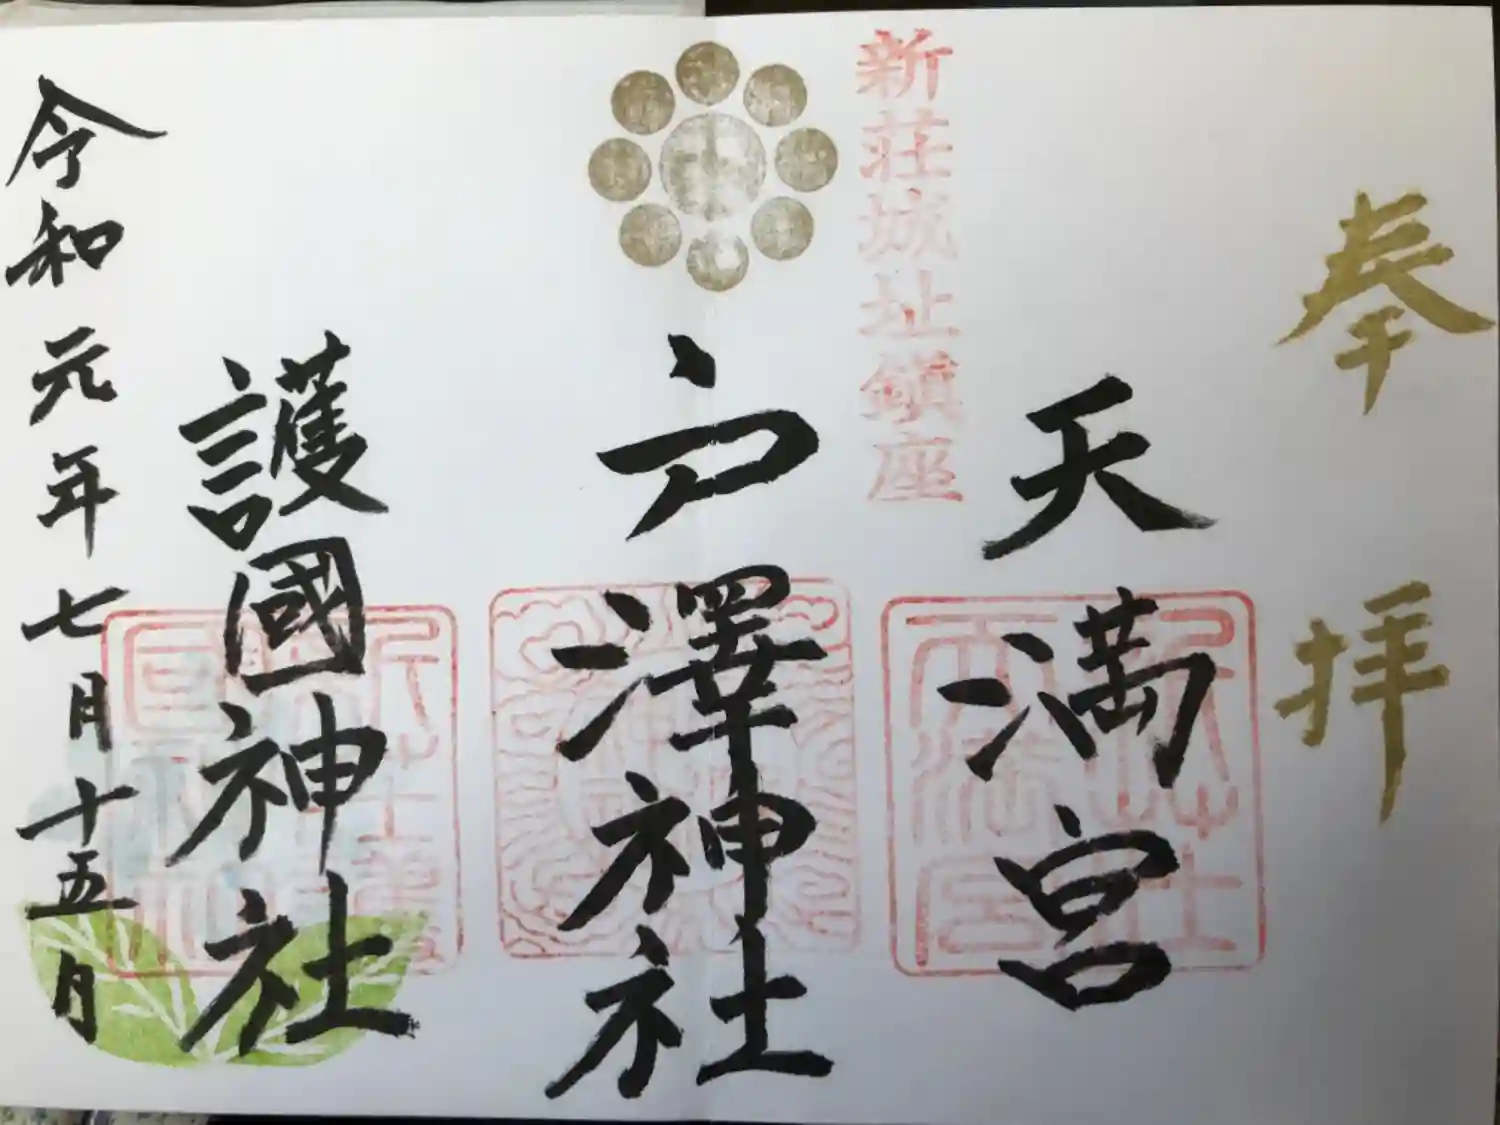 奉拝
新荘城址鎮座
天満宮
戸澤神社
護國神社
令和元年七月十五月